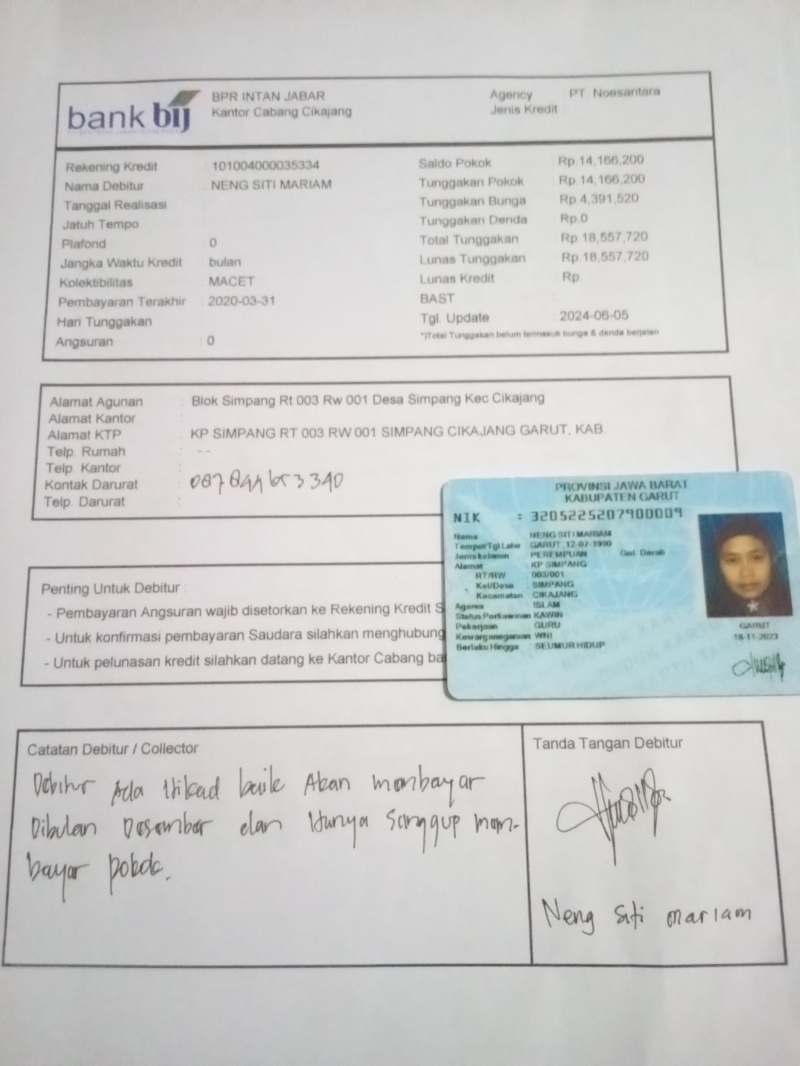 bank bij
BPR INTAN JABAR
Kantor Cabang Cikajang
Agency PT Noesantara
Jenis Kredit
Rekening Kredit : 101004000035334
Nama Debitur : NENG SITI MARIAM
Tanggal Realisasi
Jatuh Tempo
Plafond : 0
Jangka Waktu Kredit : bulan
Kolektibilitas : MACET
Pembayaran Terakhir : 2020-03-31
Hari Tunggakan
Angsuran : 0
Saldo Pokok : Rp.14,166,200
Tunggakan Pokok : Rp.14,166,200
Tunggakan Bunga : Rp.4,391,520
Tunggakan Denda : Rp.0
Total Tunggakan : Rp.18,557,720
Lunas Tunggakan : Rp.18,557,720
Lunas Kredit : Rp.
BAST
Tgl. Update : 2024-06-05
*)Total Tunggakan belum termasuk bunga & denda berjalan
Alamat Agunan : Blok Simpang Rt 003 Rw 001 Desa Simpang Kec Cikajang
Alamat Kantor :
Alamat KTP : KP SIMPANG RT 003 RW 001 SIMPANG CIKAJANG GARUT, KAB.
Telp. Rumah : - -
Telp. Kantor :
Kontak Darurat :
Telp. Darurat :
PROVINSI JAWA BARAT
KABUPATEN GARUT
NIK : 3205225207900009
Nama : NENG SITI MARIAM
Tempat/Tgl Lahir : GARUT, 12-07-1990
Jenis kelamin : PEREMPUAN Gol. Darah
Alamat : KP SIMPANG
RT/RW : 003/001
Kel/Desa : SIMPANG
Kecamatan : CIKAJANG
Agama : ISLAM
Status Perkawinan : KAWIN
Pekerjaan : GURU
Kewarganegaraan : WNI
Berlaku Hingga : SEUMUR HIDUP
GARUT
18-11-2023
Penting Untuk Debitur :
- Pembayaran Angsuran wajib disetorkan ke Rekening Kredit S
- Untuk konfirmasi pembayaran Saudara silahkan menghubung
- Untuk pelunasan kredit silahkan datang ke Kantor Cabang ba
Catatan Debitur / Collector
Debitur Ada Itikad baik Akan membayar
Dibulan Desember dan Hanya Sanggup mem-
bayar pokok.
Tanda Tangan Debitur
Neng Siti mariam